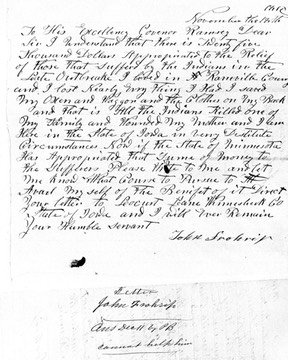 November the 14th
To His Excellency Governor Ramsey Dear
Sir I understand that there is Twenty five
Thousand Dollars Appropriated to the Relief
of those that Sufferd by the Indians in the
Late Outbreake I Lived in Renville County
and I lost Nearly Evry thing I Had I saved
My Oxen and Waggon and the Clothes on My Back
and that is All the Indians Killed one of
My Family and Wounded My Mother and I am
Here in the State of Iowa in very Destitute
Circumstances Now if the State of Minnesota
Has Appropriated that Sume of Money to
the Sufferers Please Write to Me and let
Me Know What Course to Pursue to
Avail My self of the Benifet of it Direct
Your letter to Locust Lane Winnesheick Co
State of Iowa and I will Ever Remain
Your Humble Servant
John
Letter
John
Ans Dec 11 by
cannot help him